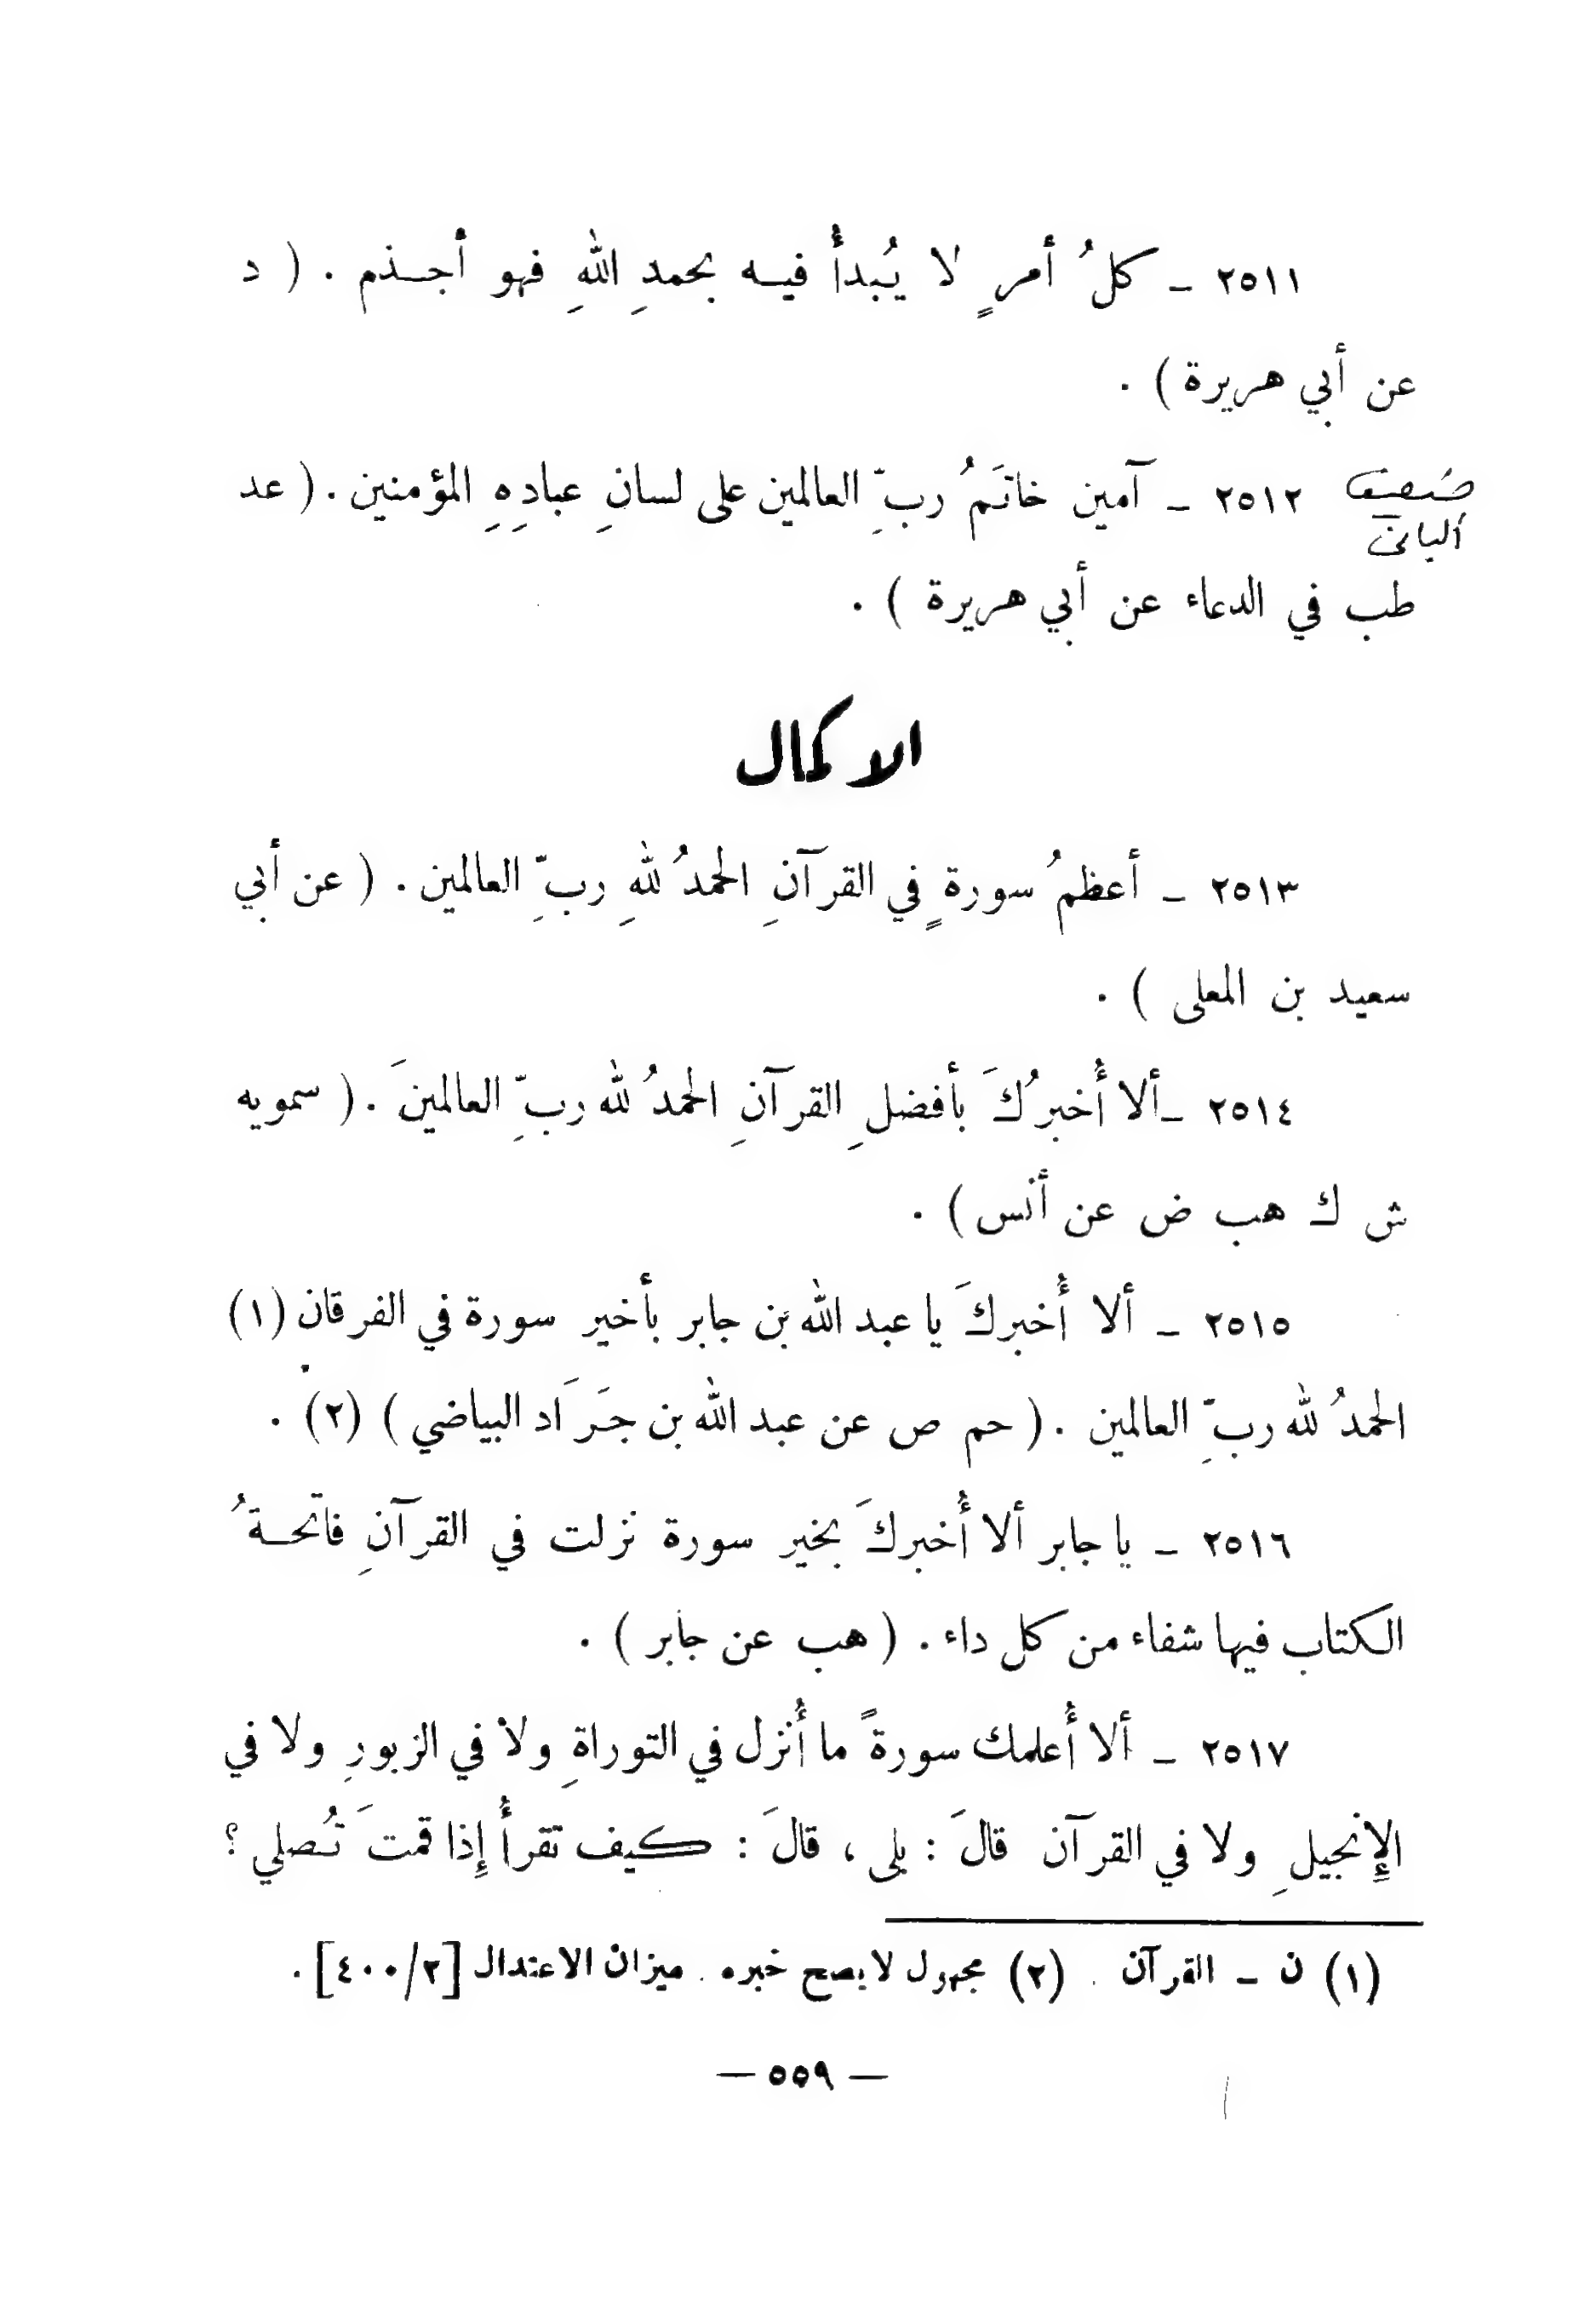 ٢٥١١ ـ كلُ أمرٍ لا يُبدأُ فيـه بحمدِ اللهِ فهو أجـذم . ( د
عن أبي هريرة ) .
٢٥١٢ ـ آمين خاتَمُ ربِّ العالمين على لسانِ عبادِهِ المؤمنين . ( عد
ضعيف
ألباني
طب في الدعاء عن أبي هريرة ) .
الاكمال
٢٥١٣ ـ أعظمُ سورةٍ في القرآنِ الحمدُ للهِ ربِّ العالمين . ( عن أبي
سعيد بن المعلى ) .
٢٥١٤ ـ ألا أُخبرُكَ بأفضلِ القرآنِ الحمدُ لله ربِّ العالمينَ . ( سمويه
ش ك هب ض عن أنس ) .
٢٥١٥ ـ ألا أُخبركَ يا عبد الله بن جابر بأخير سورة في الفرقان (١)
الحمدُ لله ربِّ العالمين . ( حم ص عن عبد الله بن جَرَاد البياضي ) (٢) .
٢٥١٦ ـ يا جابر ألا أُخبركَ بخير سورة نزلت في القرآنِ فاتحـةُ
الكتاب فيها شفاء من كل داء . ( هب عن جابر ) .
٢٥١٧ ـ ألا أُعلمك سورةً ما أُنزل في التوراةِ ولا في الزبورِ ولا في
الإِنجيلِ ولا في القرآن قالَ : بلى ، قالَ : كيف تقرأُ إِذا قمتَ تُصلي ؟
(١) ن ـ القرآن . (٢) مجهول لا يصح خبره . ميزان الاعتدال [٤٠٠/٢] .
— ٥٥٩ —